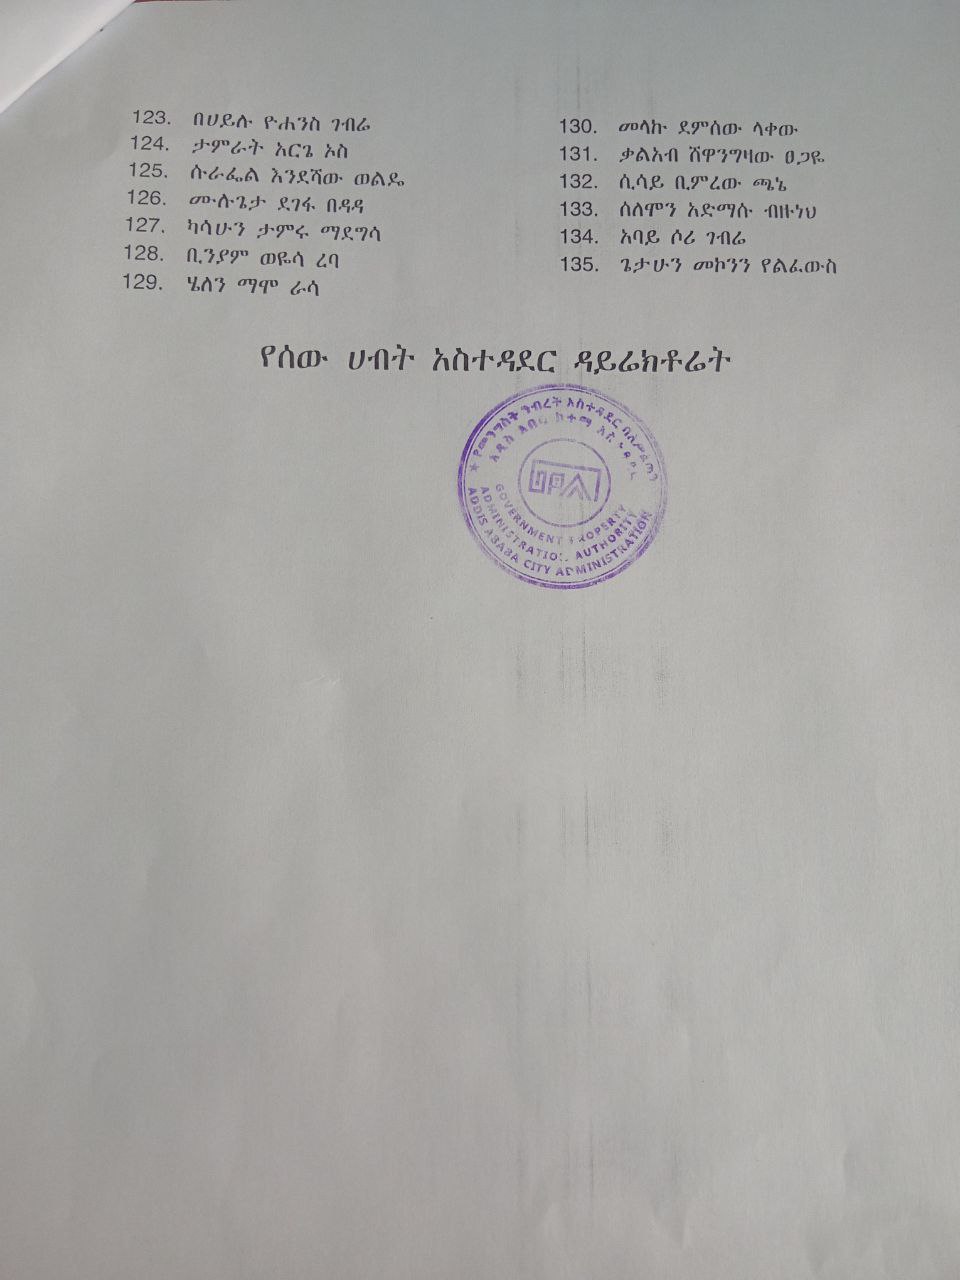 123. በሀይሉ ዮሐንስ ገብሬ
124. ታምራት አርጌ ኦስ
125. ሱራፌል እንደሻው ወልዴ
126. ሙሉጌታ ደገፋ በዳዳ
127. ካሳሁን ታምሩ ማደግሳ
128. ቢንያም ወዬሳ ረባ
129. ሄለን ማሞ ራሳ
130. መላኩ ደምሰው ላቀው
131. ቃልአብ ሽዋንግዛው ፀጋዬ
132. ሲሳይ ቢምረው ጫኔ
133. ሰለሞን አድማሱ ብዙነህ
134. አባይ ሶሪ ገብሬ
135. ጌታሁን መኮንን የልፈውስ
የሰው ሀብት አስተዳደር ዳይሬክቶሬት
የመንግስት ንብረት አስተዳደር ባለሥልጣን
አዲስ አበባ ከተማ
GOVERNMENT PROPERTY
ADMINISTRATION AUTHORITY
ADDIS ABABA CITY ADMINISTRATION